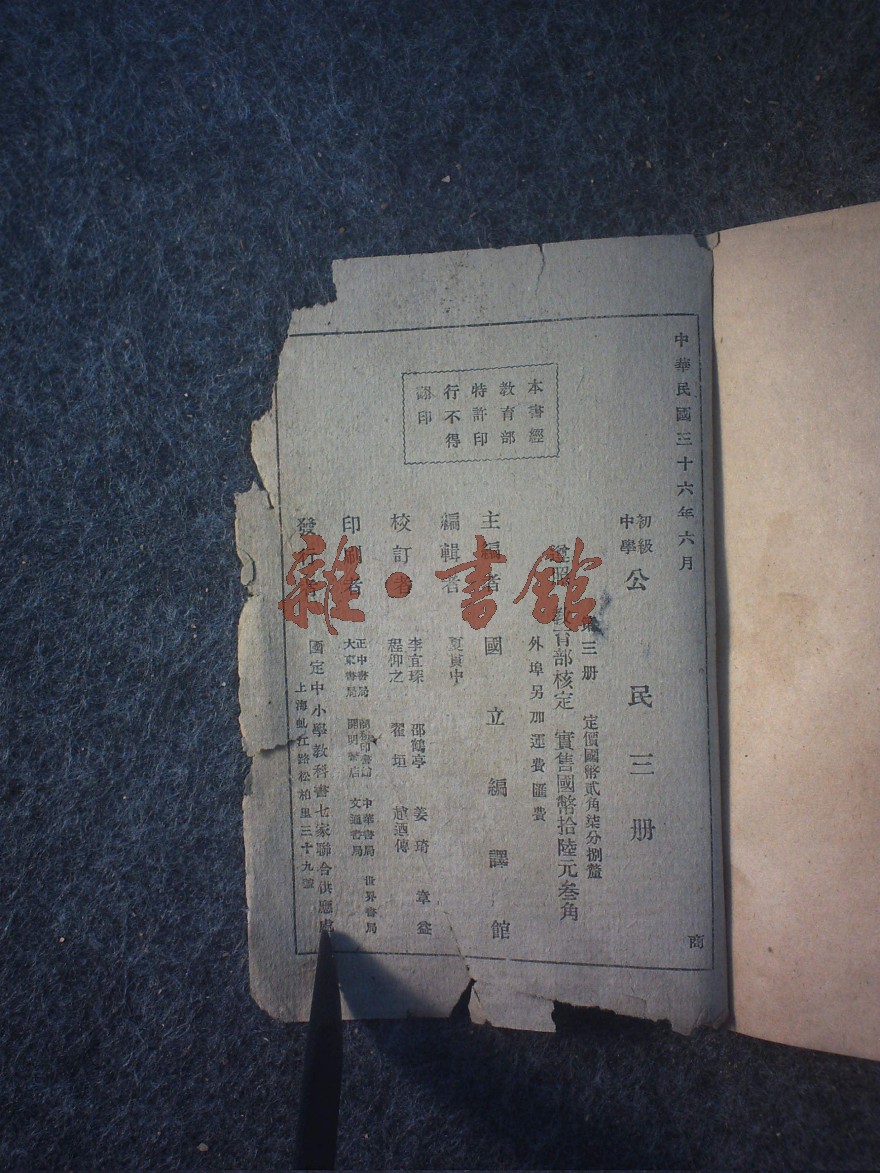 中華民國三十六年六月
商
初級
中學
公民三册
第三册 定價國幣貳角柒分捌釐
遵照 教育部核定 實售國幣拾陸元叁角
外埠另加運費匯費
本書經
教育部
特許印
行不得
翻印
主編者 國立編譯館
編輯者 夏貫中
校訂者
李宜琛 邵鶴亭 姜琦 章益
程仰之 瞿垣
印刷者
正中書局 商務印書館 中華書局 世界書局
大東書局 開明書店 文通書局
發行者 國定中小學教科書七家聯合供應處
上海虬江路松柏里三十九號
雜·書館